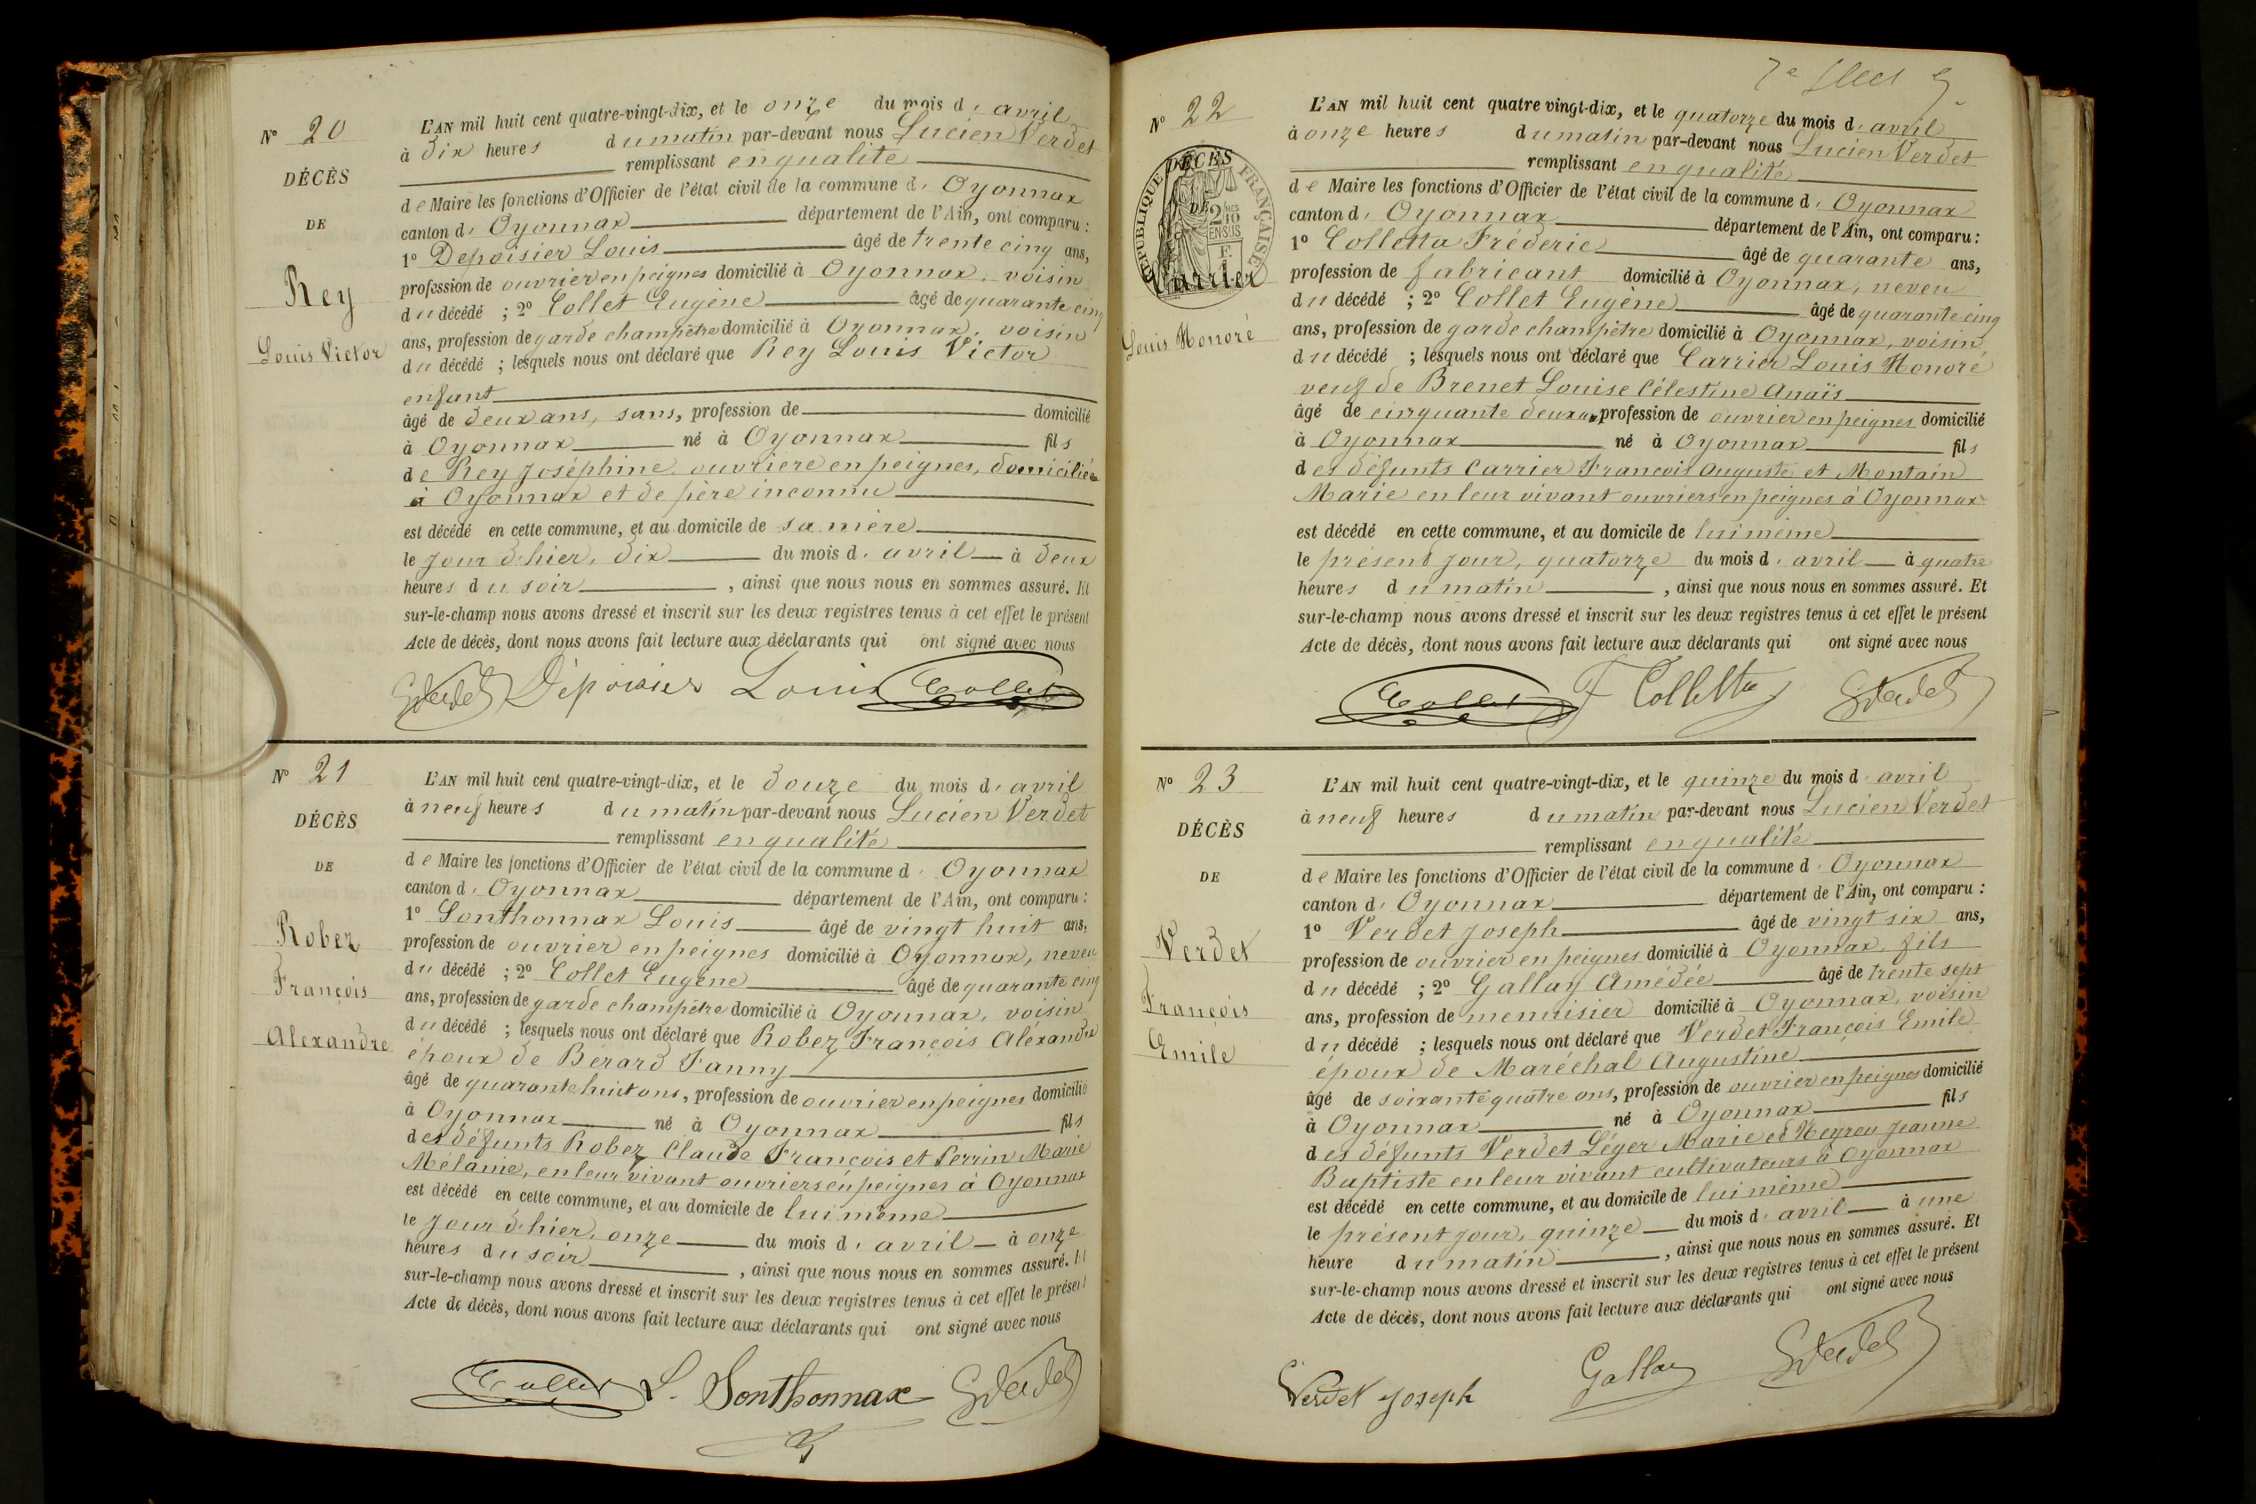 N° 20
DÉCÈS
DE
Rey
Louis Victor
L'AN mil huit cent quatre-vingt-dix, et le onze du mois d' avril
à dix heures du matin par-devant nous Lucien Verdet
remplissant en qualité
de Maire les fonctions d'Officier de l'état civil de la commune d' Oyonnax
canton d' Oyonnax département de l'Ain, ont comparu :
1° Depoisier Louis âgé de trente cinq ans,
profession de ouvrier en peignes domicilié à Oyonnax, voisin
du décédé ; 2° Collet Eugène âgé de quarante cinq
ans, profession de garde champêtre domicilié à Oyonnax, voisin
du décédé ; lesquels nous ont déclaré que Rey Louis Victor
enfant
âgé de deux ans, sans, profession de domicilié
à Oyonnax né à Oyonnax fils
de Rey Joséphine ouvrière en peignes, domiciliée
à Oyonnax et de père inconnu
est décédé en cette commune, et au domicile de sa mère
le jour d'hier, dix du mois d' avril à deux
heures du soir , ainsi que nous nous en sommes assuré. Et
sur-le-champ nous avons dressé et inscrit sur les deux registres tenus à cet effet le présent
Acte de décès, dont nous avons fait lecture aux déclarants qui ont signé avec nous
Verdet Dépoisier Louis Collet
N° 21
DÉCÈS
DE
Robez
François
Alexandre
L'AN mil huit cent quatre-vingt-dix, et le douze du mois d' avril
à neuf heures du matin par-devant nous Lucien Verdet
remplissant en qualité
de Maire les fonctions d'Officier de l'état civil de la commune d' Oyonnax
canton d' Oyonnax département de l'Ain, ont comparu :
1° Sonthonnax Louis âgé de vingt huit ans,
profession de ouvrier en peignes domicilié à Oyonnax, neveu
du décédé ; 2° Collet Eugène âgé de quarante cinq
ans, profession de garde champêtre domicilié à Oyonnax, voisin
du décédé ; lesquels nous ont déclaré que Robez François Aléxandre
époux de Bérard Fanny
âgé de quarante huit ans, profession de ouvrier en peignes domicilié
à Oyonnax né à Oyonnax fils
des défunts Robez Claude François et Perrin Marie
Mélanie, en leur vivant ouvriers en peignes à Oyonnax
est décédé en cette commune, et au domicile de lui même
le jour d'hier, onze du mois d' avril à onze
heures du soir , ainsi que nous nous en sommes assuré. Et
sur-le-champ nous avons dressé et inscrit sur les deux registres tenus à cet effet le présent
Acte de décès, dont nous avons fait lecture aux déclarants qui ont signé avec nous
Collet L. Sonthonnax Verdet
N° 22
DÉCÈS
DE
RÉPUBLIQUE FRANÇAISE
2 10
EN SUS
Carrier
Louis Honoré
L'AN mil huit cent quatre vingt-dix, et le quatorze du mois d' avril
à onze heures du matin par-devant nous Lucien Verdet
remplissant en qualité
de Maire les fonctions d'Officier de l'état civil de la commune d' Oyonnax
canton d' Oyonnax département de l'Ain, ont comparu :
1° Colletta Fréderic âgé de quarante ans,
profession de fabricant domicilié à Oyonnax, neveu
du décédé ; 2° Collet Eugène âgé de quarante cinq
ans, profession de garde champêtre domicilié à Oyonnax, voisin
du décédé ; lesquels nous ont déclaré que Carrier Louis Honoré
veuf de Brenet Louise Célestine Anaïs
âgé de cinquante deux profession de ouvrier en peignes domicilié
à Oyonnax né à Oyonnax fils
des défunts Carrier François Auguste et Montain
Marie en leur vivant ouvriers en peignes à Oyonnax
est décédé en cette commune, et au domicile de lui même
le présent jour, quatorze du mois d' avril à quatre
heures du matin , ainsi que nous nous en sommes assuré. Et
sur-le-champ nous avons dressé et inscrit sur les deux registres tenus à cet effet le présent
Acte de décès, dont nous avons fait lecture aux déclarants qui ont signé avec nous
Collet F Colletta Verdet
N° 23
DÉCÈS
DE
Verdet
François
Emile
L'AN mil huit cent quatre-vingt-dix, et le quinze du mois d' avril
à neuf heures du matin par-devant nous Lucien Verdet
remplissant en qualité
de Maire les fonctions d'Officier de l'état civil de la commune d' Oyonnax
canton d' Oyonnax département de l'Ain, ont comparu :
1° Verdet Joseph âgé de vingt six ans,
profession de ouvrier en peignes domicilié à Oyonnax, fils
du décédé ; 2° Gallay Amédée âgé de trente sept
ans, profession de menuisier domicilié à Oyonnax, voisin
du décédé ; lesquels nous ont déclaré que Verdet François Emile
époux de Maréchal Augustine
âgé de soixante quatre ans, profession de ouvrier en peignes domicilié
à Oyonnax né à Oyonnax fils
des défunts Verdet Léger Marie et Neyrou Jeanne
Baptiste en leur vivant cultivateurs à Oyonnax
est décédé en cette commune, et au domicile de lui même
le présent jour, quinze du mois d' avril à une
heure du matin , ainsi que nous nous en sommes assuré. Et
sur-le-champ nous avons dressé et inscrit sur les deux registres tenus à cet effet le présent
Acte de décès, dont nous avons fait lecture aux déclarants qui ont signé avec nous
Verdet Joseph Gallay Verdet